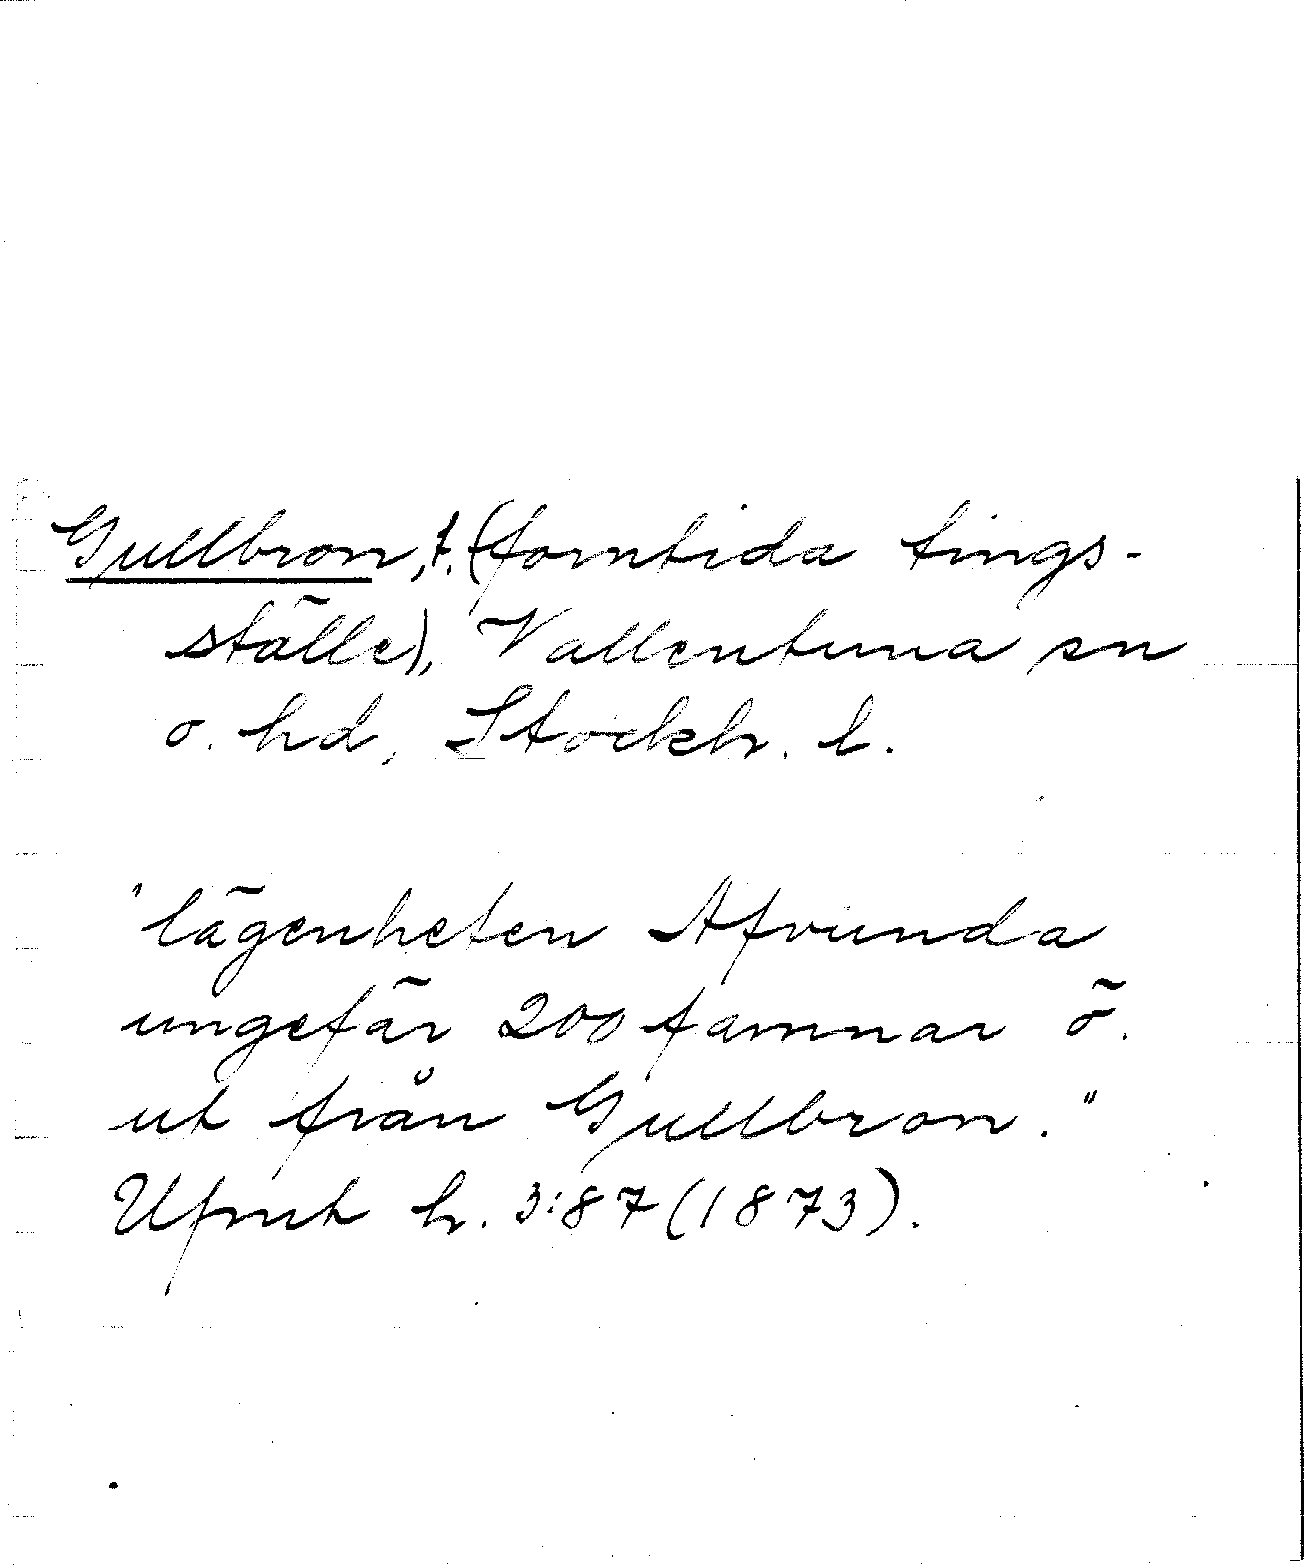 Gullbron, f. (forntida tings-
ställe), Vallentuna sn
o. hd, Stockh. l.
"lägenheten Afvunda
ungefär 200 famnar ö.
ut från Gullbron."
Ufmt h. 3:87 (1873).